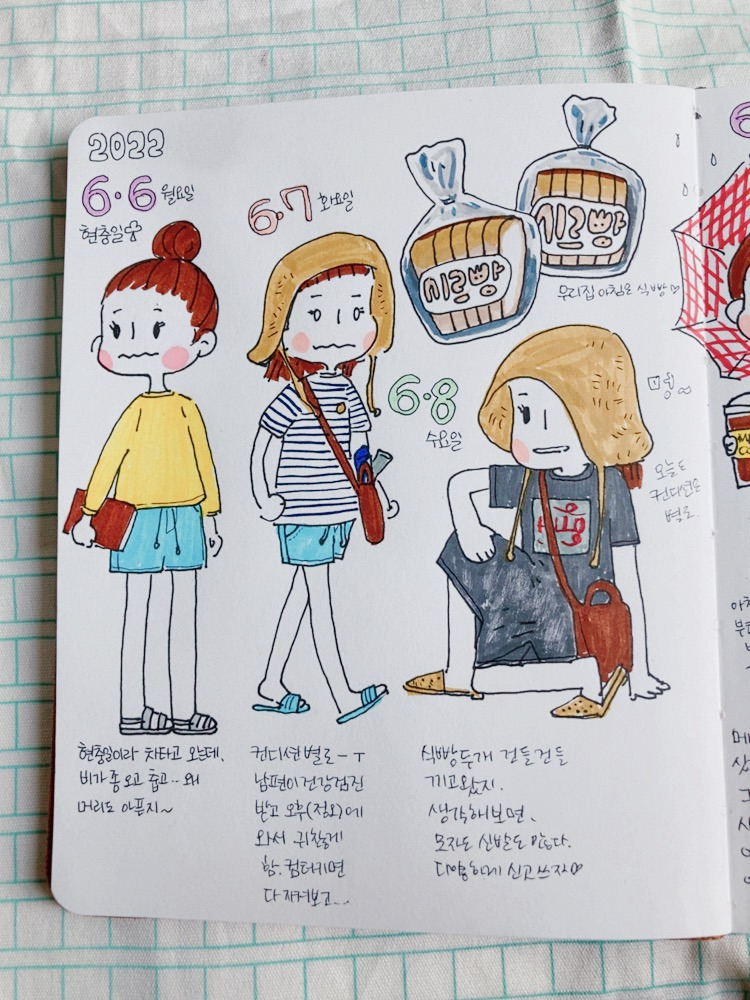 2022
6·6 월요일
현충일
6·7 화요일
식빵
식빵
우리집 아침은 식빵♡
6·8
수요일
멍
오늘도
컨디션은
별로.
현충일이라 차타고 오는데,
비가 좀 오고 춥고.. 왜
머리도 아픈지~
컨디션 별로-ㅜ
남편이 건강검진
받고 오후(정오)에
와서 귀찮게
함. 컴터키면
다
식빵 두개 건들건들
끼고 왔지.
생각해보면,
모자도 신발도 많다.
다양하게 신고 쓰자♡